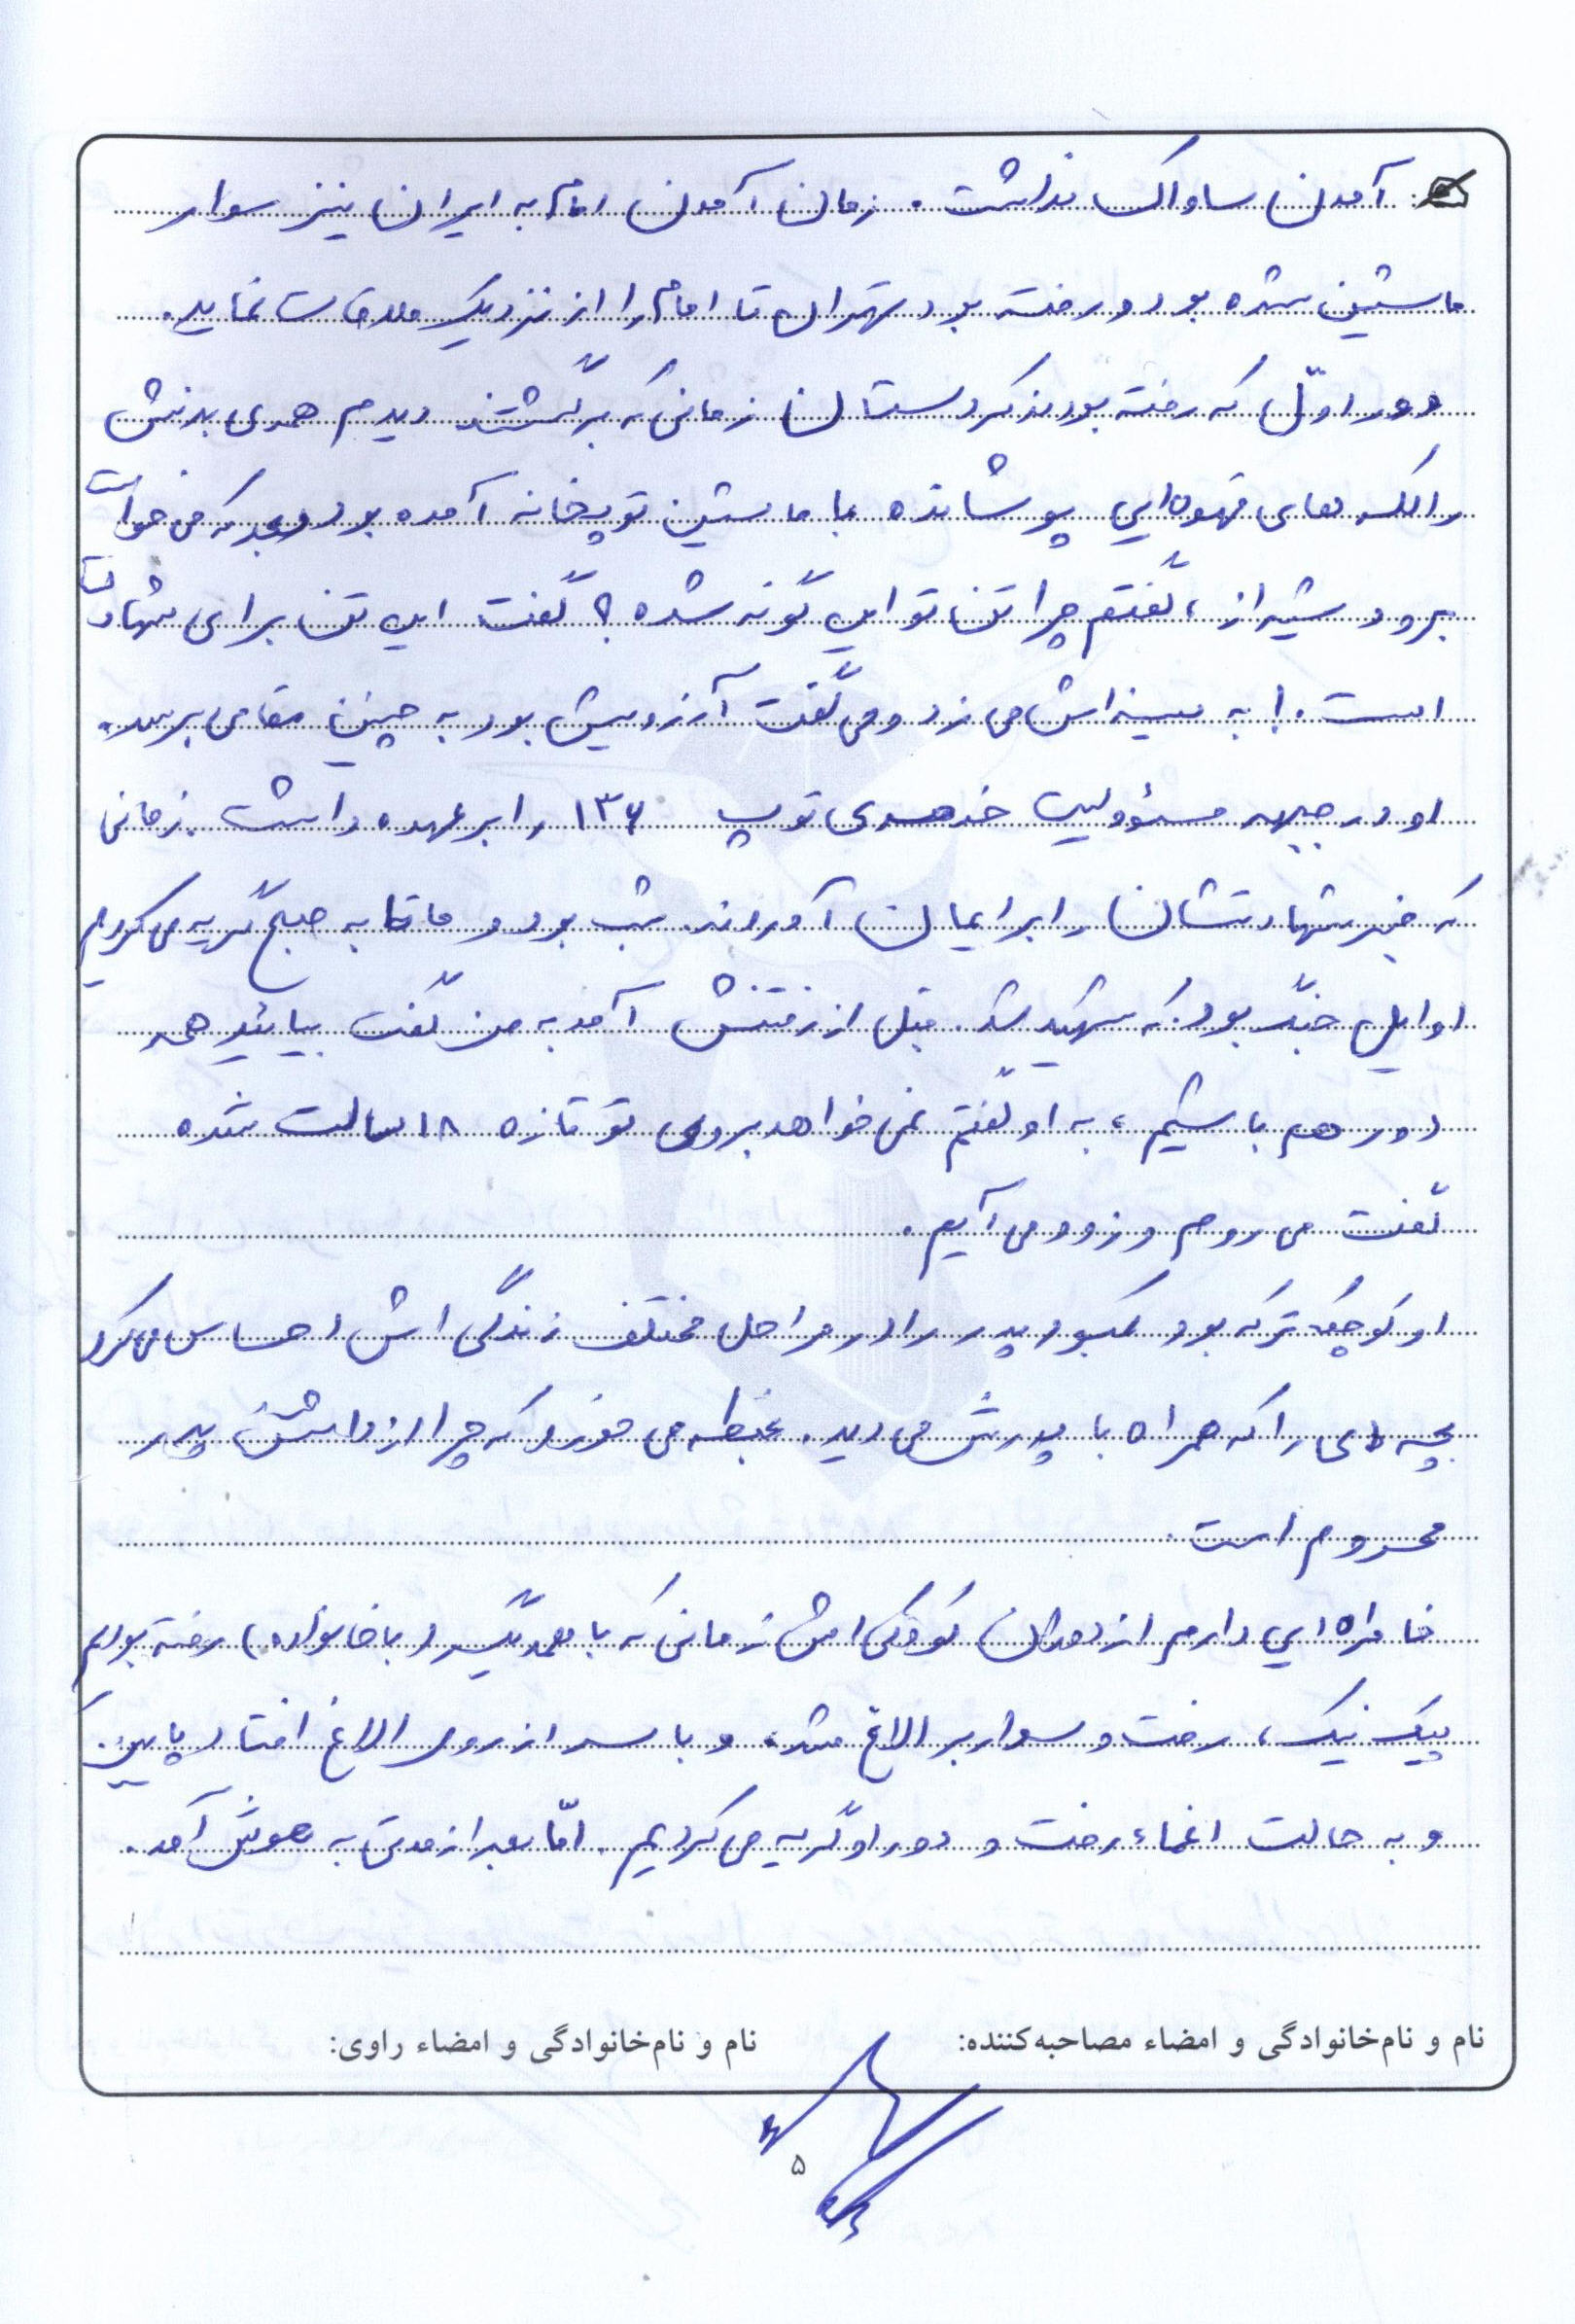 آمدن ساواک نداشت. زمان آمدن امام به ایران نیز سوار
ماشین شده بود و رفته بود تهران تا امام را از نزدیک ملاقات نماید.
دور اوّل که رفته بودند کردستان زمانی که برگشتند دیدم همه‌ی بدنش
را لکه‌های قهوه‌ایی پوشانده با ماشین توپخانه آمده بود و بعد که می خواست
برود شیراز، گفتم چرا تن تو این گونه شده؟ گفت این تن برای شهادت
است.! به سینه‌اش می زد و می گفت آرزویش بود به چنین مقامی برسد.
او در جبهه مسؤولیت خدمه‌ی توپ ۱۳۶ را بر عهده داشت. زمانی
که خبر شهادتشان را برایمان آوردند. شب بود و ما تا به صبح گریه می کردیم
اوایل جنگ بود که شهید شد. قبل از رفتنش آمد به من گفت بیائید همه
دور هم باشیم، به او گفتم نمی خواهد بروی تو تازه ۱۸ سالت شده
گفت می روم و زود می آیم.
او کوچک تر که بود کمبود پدر را در مراحل مختلف زندگی اش احساس می کرد
بچه ای را که همراه با پدرش می دید. غبطه می خورد که چرا از داشتن پدر
محروم است.
خاطره ایی دارم از دوران کودکی اش زمانی که با همدیگر (با خانواده) رفته بودیم
پیک نیک، رفت و سوار بر الاغ شد، و با سر از روی الاغ افتاد پایین
و به حالت اغماء رفت و دور او گریه می کردیم. امّا بعد از مدتی به هوش آمد.
نام و نام‌خانوادگی و امضاء مصاحبه‌کننده: نام و نام‌خانوادگی و امضاء راوی:
۵